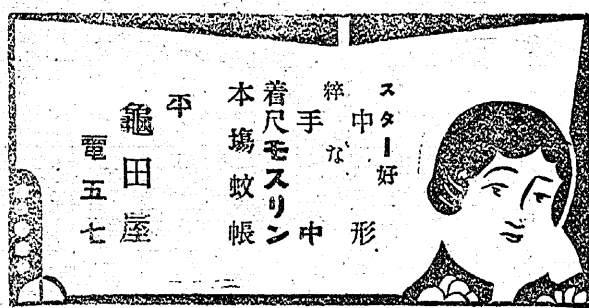 スター好
中形
粹な
手中
着尺モスリン
本場蚊帳
平
龜田屋
電五七